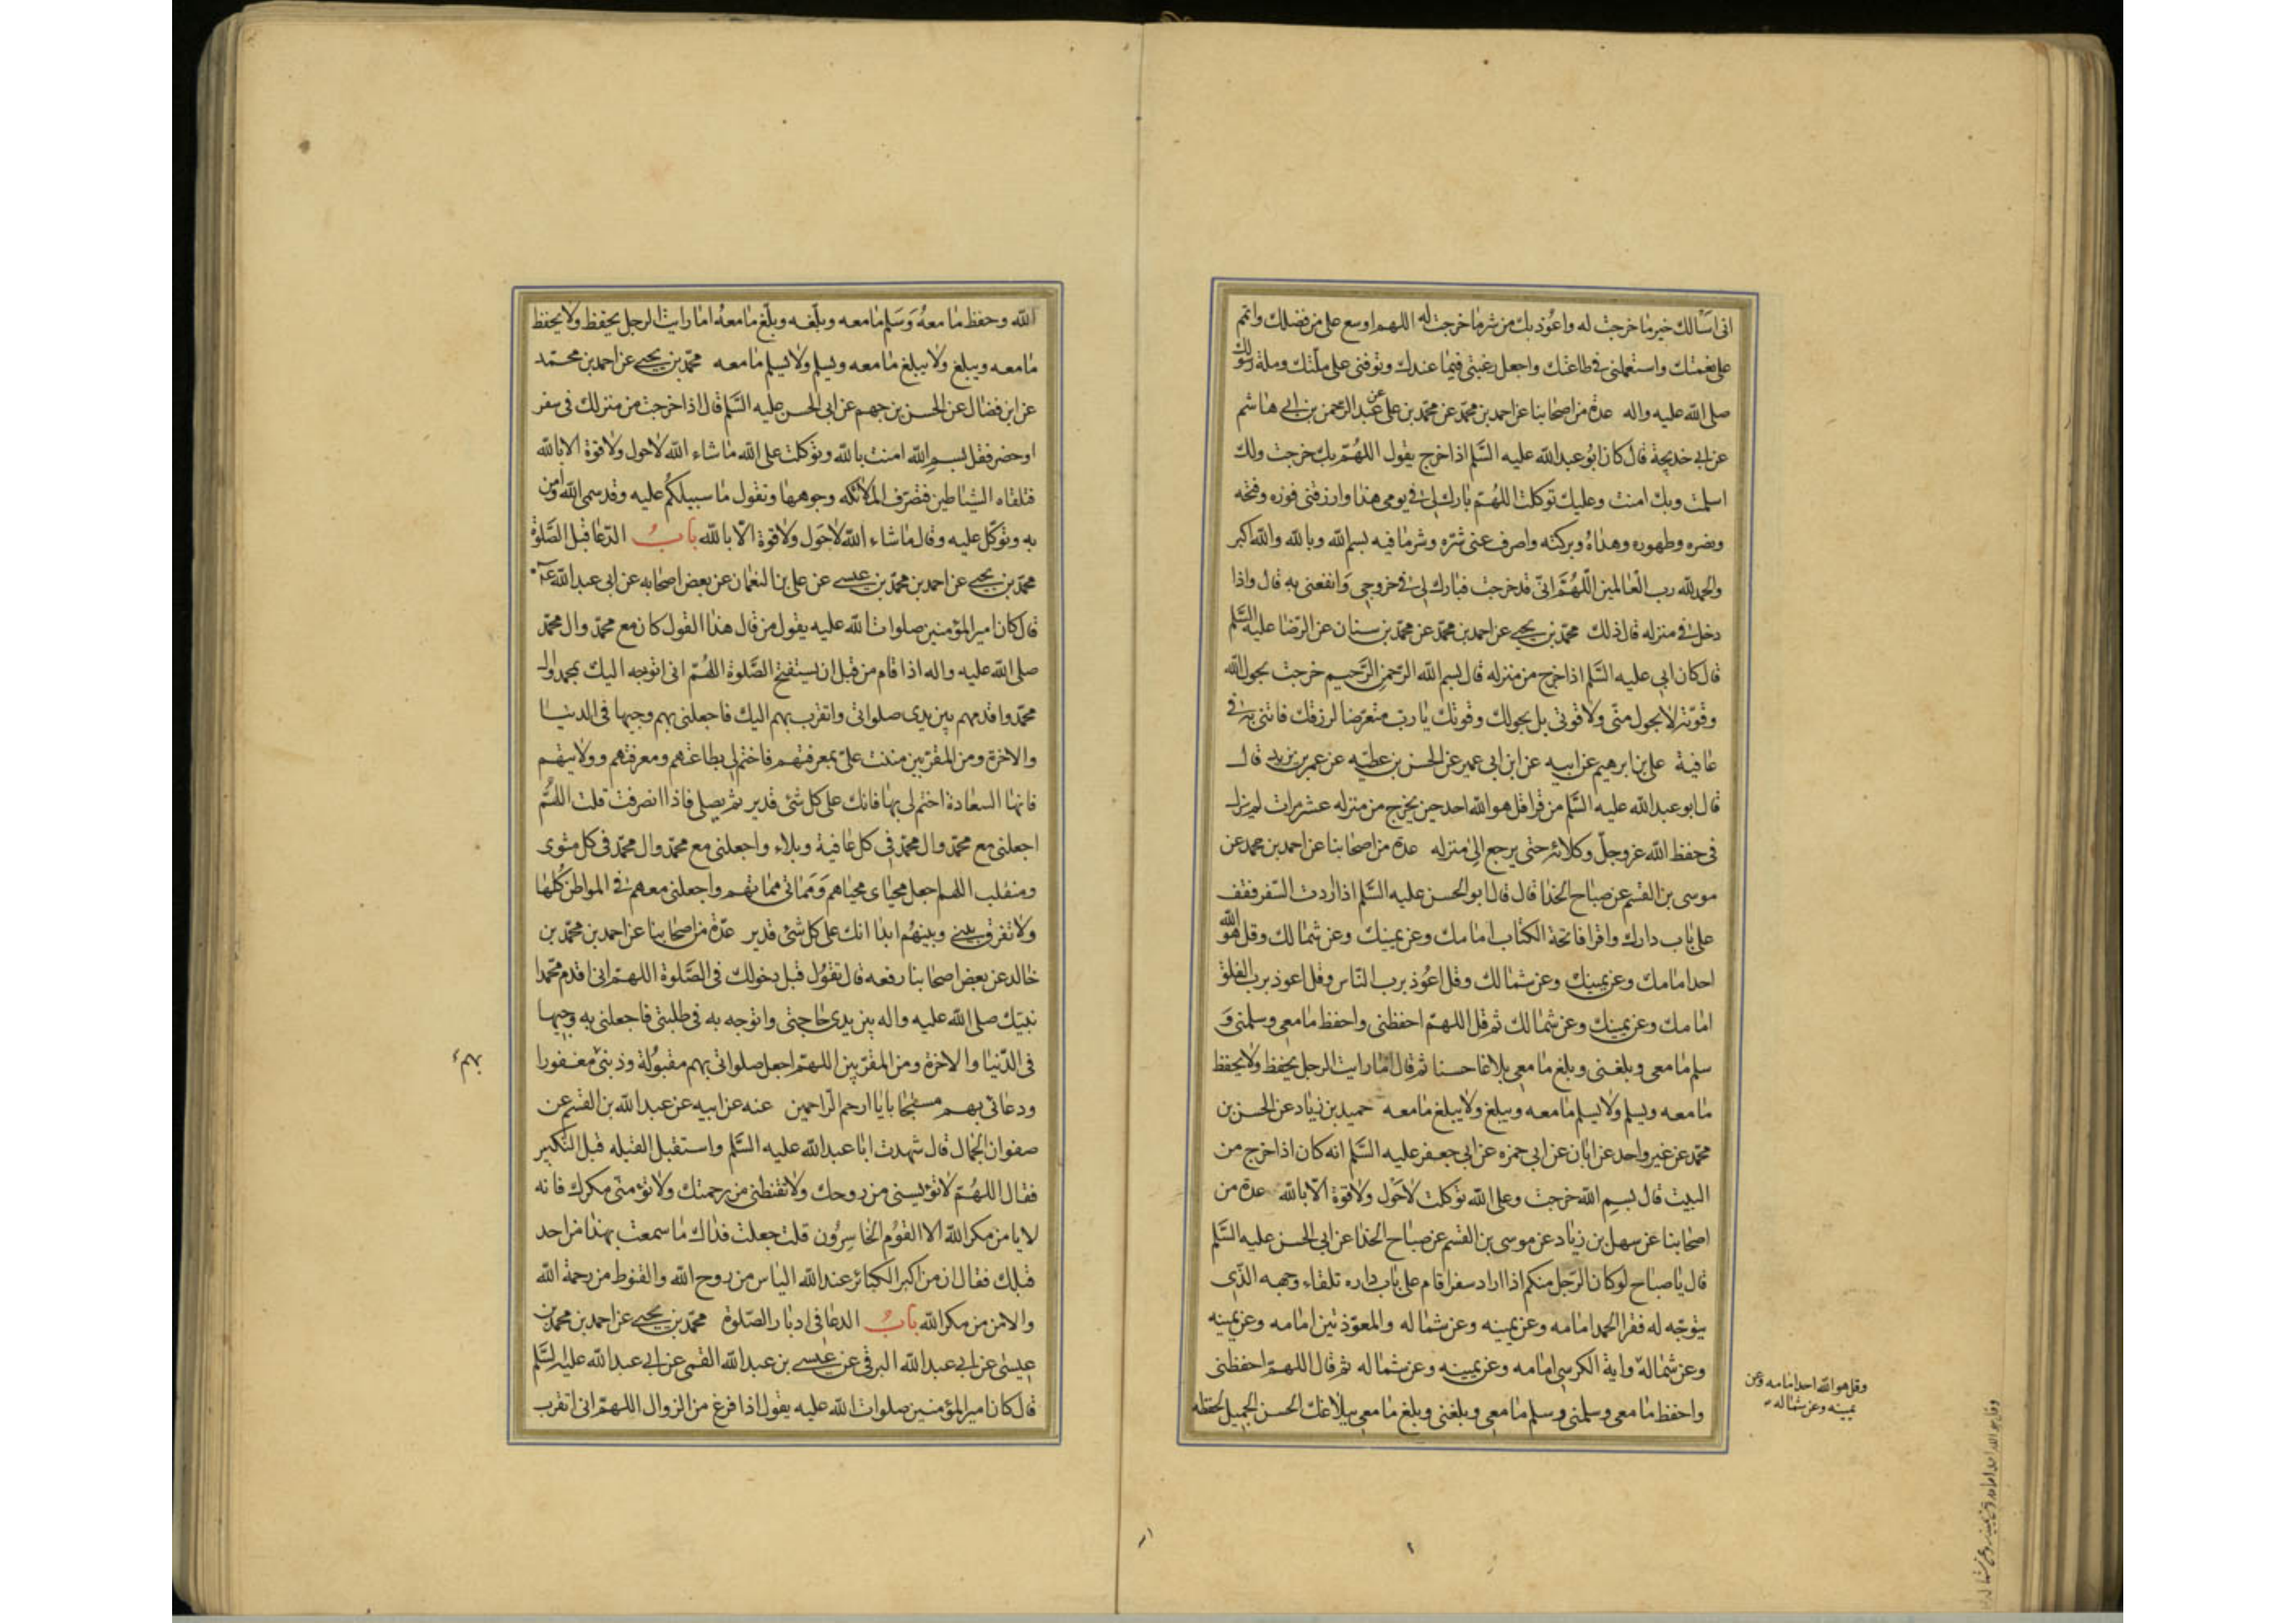 انى اسألك خير ما خرجت له واعوذ بك من شر ما خرجت له اللهم اوسع على من فضلك واتمم
على نعمتك واستعملنى فى طاعتك واجعل رغبتى فيما عندك وتوفنى على ملتك وملة رسولك
صلى الله عليه واله عدة من اصحابنا عن احمد بن محمد عن محمد بن على عن عبد الرحمن بن ابى هاشم
عن ابى خديجة قال كان ابو عبد الله عليه السلم اذا خرج يقول اللهم بك خرجت ولك
اسلمت وبك امنت وعليك توكلت اللهم بارك لى فى يومى هذا وارزقنى فوزه وفتحه
ونصره وطهوره وهداه وبركته واصرف عنى شره وشر ما فيه بسم الله وبالله والله اكبر
والحمد لله رب العالمين اللهم انى قد خرجت فبارك لى فى خروجى وانفعنى به قال واذا
دخل فى منزله قال ذلك محمد بن يحيى عن احمد بن محمد عن محمد بن سنان عن الرضا عليه السلم
قال كان ابى عليه السلم اذا خرج من منزله قال بسم الله الرحمن الرحيم خرجت بحول الله
وقوته لا بحول منى ولا قوتى بل بحولك وقوتك يا رب متعرضا لرزقك فاتنى به فى
عافية على بن ابرهيم عن ابيه عن ابن ابى عمير عن الحسن بن عطيه عن عمر بن يزيد قال
قال ابو عبد الله عليه السلم من قرا قل هو الله احد حين يخرج من منزله عشر مرات لم يزل
فى حفظ الله عز وجل وكلائه حتى يرجع الى منزله عدة من اصحابنا عن احمد بن محمد عن
موسى بن القسم عن صباح الحذا قال قال ابو الحسن عليه السلم اذا اردت السفر فقف
على باب دارك واقرا فاتحة الكتاب امامك وعن يمينك وعن شمالك وقل هو الله
احد امامك وعن يمينك وعن شمالك وقل اعوذ برب الناس وقل اعوذ برب الفلق
امامك وعن يمينك وعن شمالك ثم قل اللهم احفظنى واحفظ ما معى وسلمنى و
سلم ما معى وبلغنى وبلغ ما معى بلاغا حسنا ثم قال اما رايت الرجل يحفظ ولا يحفظ
ما معه ويسلم ولا يسلم ما معه ويبلغ ولا يبلغ ما معه حميد بن زياد عن الحسن بن
محمد عن غير واحد عن ابان عن ابى حمزه عن ابى جعفر عليه السلم انه كان اذا خرج من
البيت قال بسم الله خرجت وعلى الله توكلت لا حول ولا قوة الا بالله عدة من
اصحابنا عن سهل بن زياد عن موسى بن القسم عن صباح الحذا عن ابى الحسن عليه السلم
قال يا صباح لو كان الرجل منكم اذا اراد سفرا قام على باب داره تلقاء وجهه الذى
يتوجه له فقرا الحمد امامه وعن يمينه وعن شماله والمعوذتين امامه وعن يمينه
وعن شماله واية الكرسى امامه وعن يمينه وعن شماله ثم قال اللهم احفظنى
واحفظ ما معى وسلمنى وسلم ما معى وبلغنى وبلغ ما معى ببلاغك الحسن الجميل لحفظه
وقل هو الله احد امامه وعن
يمينه وعن شماله
الله وحفظ ما معه وسلم ما معه وبلغه وبلغ ما معه اما رايت الرجل يحفظ ولا يحفظ
ما معه ويبلغ ولا يبلغ ما معه ويسلم ولا يسلم ما معه محمد بن يحيى عن احمد بن محمد
عن ابن فضال عن الحسن بن جهم عن ابى الحسن عليه السلم قال اذا خرجت من منزلك فى سفر
او حضر فقل بسم الله امنت بالله وتوكلت على الله ما شاء الله لا حول ولا قوة الا بالله
فتلقاه الشياطين فتصرف الملائكه وجوهها وتقول ما سبيلكم عليه وقد سمى الله وامن
به وتوكل عليه وقال ما شاء الله لا حول ولا قوة الا بالله باب الدعا قبل الصلوة
محمد بن يحيى عن احمد بن محمد بن عيسى عن على بن النعمان عن بعض اصحابه عن ابى عبد الله ع
قال كان امير المؤمنين صلوات الله عليه يقول من قال هذا القول كان مع محمد وال محمد
صلى الله عليه واله اذا قام من قبل ان يستفتح الصلوة اللهم انى اتوجه اليك بمحمد وال
محمد واقدمهم بين يدى صلواتى واتقرب بهم اليك فاجعلنى بهم وجيها فى الدنيا
والاخرة ومن المقربين مننت على بمعرفتهم فاختم لى بطاعتهم ومعرفتهم وولايتهم
فانها السعادة اختم لى بها فانك على كل شئ قدير ثم يصلى فاذا انصرفت قلت اللهم
اجعلنى مع محمد وال محمد فى كل عافية وبلاء واجعلنى مع محمد وال محمد فى كل مثوى
ومنقلب اللهم اجعل محياى محياهم ومماتى مماتهم واجعلنى معهم فى المواطن كلها
ولا تفرق بينى وبينهم ابدا انك على كل شئ قدير عدة من اصحابنا عن احمد بن محمد بن
خالد عن بعض اصحابنا رفعه قال تقول قبل دخولك فى الصلوة اللهم انى اقدم محمدا
نبيك صلى الله عليه واله بين يدى حاجتى واتوجه به فى طلبتى فاجعلنى به وجيها
فى الدنيا والاخرة ومن المقربين اللهم اجعل صلواتى بهم مقبولة وذنبى مغفورا
بهم
ودعائى بهم مستجابا يا ارحم الراحمين عنه عن ابيه عن عبد الله بن القسم عن
صفوان الجمال قال شهدت ابا عبد الله عليه السلم واستقبل القبله قبل التكبير
فقال اللهم لا تؤيسنى من روحك ولا تقنطنى من رحمتك ولا تؤمنى مكرك فانه
لا يامن مكر الله الا القوم الخاسرون قلت جعلت فداك ما سمعت بهذا من احد
قبلك فقال ان من اكبر الكبائر عند الله الياس من روح الله والقنوط من رحمة الله
والامن من مكر الله باب الدعا فى ادبار الصلوة محمد بن يحيى عن احمد بن محمد بن
عيسى عن ابى عبد الله البرقى عن عيسى بن عبد الله القمى عن ابى عبد الله عليه السلم
قال كان امير المؤمنين صلوات الله عليه يقول اذا فرغ من الزوال اللهم انى اتقرب